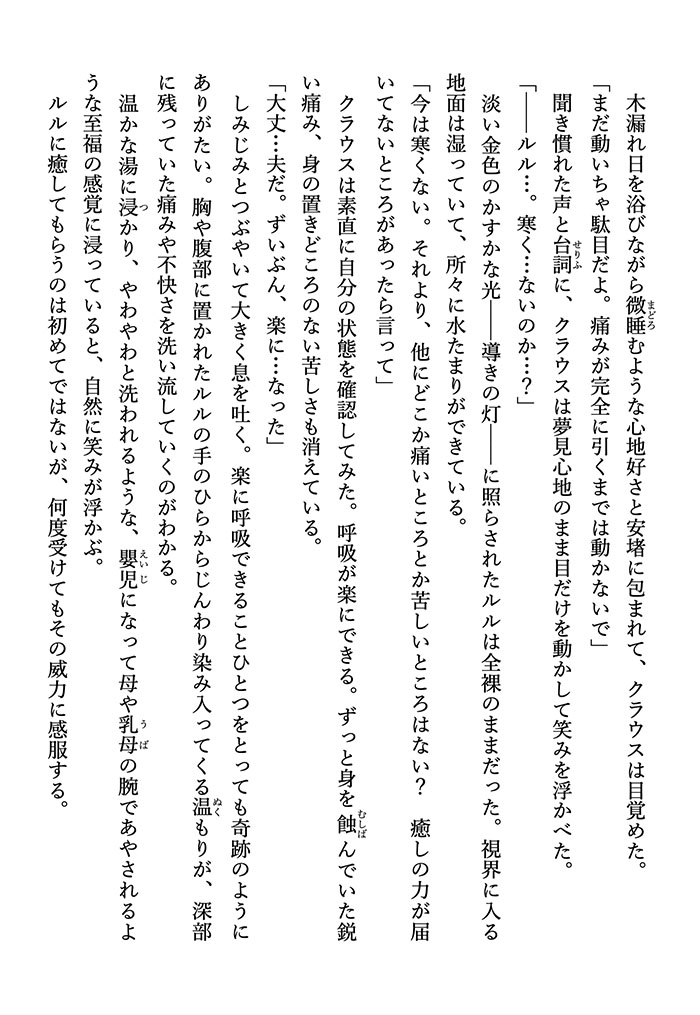 木漏れ日を浴びながら微睡むような心地好さと安堵に包まれて、クラウスは目覚めた。
「まだ動いちゃ駄目だよ。痛みが完全に引くまでは動かないで」
聞き慣れた声と台詞に、クラウスは夢見心地のまま目だけを動かして笑みを浮かべた。
「――ルル…。寒く…ないのか…？」
淡い金色のかすかな光――導きの灯――に照らされたルルは全裸のままだった。視界に入る
地面は湿っていて、所々に水たまりができている。
「今は寒くない。それより、他にどこか痛いところとか苦しいところはない？　癒しの力が届
いてないところがあったら言って」
クラウスは素直に自分の状態を確認してみた。呼吸が楽にできる。ずっと身を蝕んでいた鋭
い痛み、身の置きどころのない苦しさも消えている。
「大丈…夫だ。ずいぶん、楽に…なった」
しみじみとつぶやいて大きく息を吐く。楽に呼吸できることひとつをとっても奇跡のように
ありがたい。胸や腹部に置かれたルルの手のひらからじんわり染み入ってくる温もりが、深部
に残っていた痛みや不快さを洗い流していくのがわかる。
温かな湯に浸かり、やわやわと洗われるような、嬰児になって母や乳母の腕であやされるよ
うな至福の感覚に浸っていると、自然に笑みが浮かぶ。
ルルに癒してもらうのは初めてではないが、何度受けてもその威力に感服する。